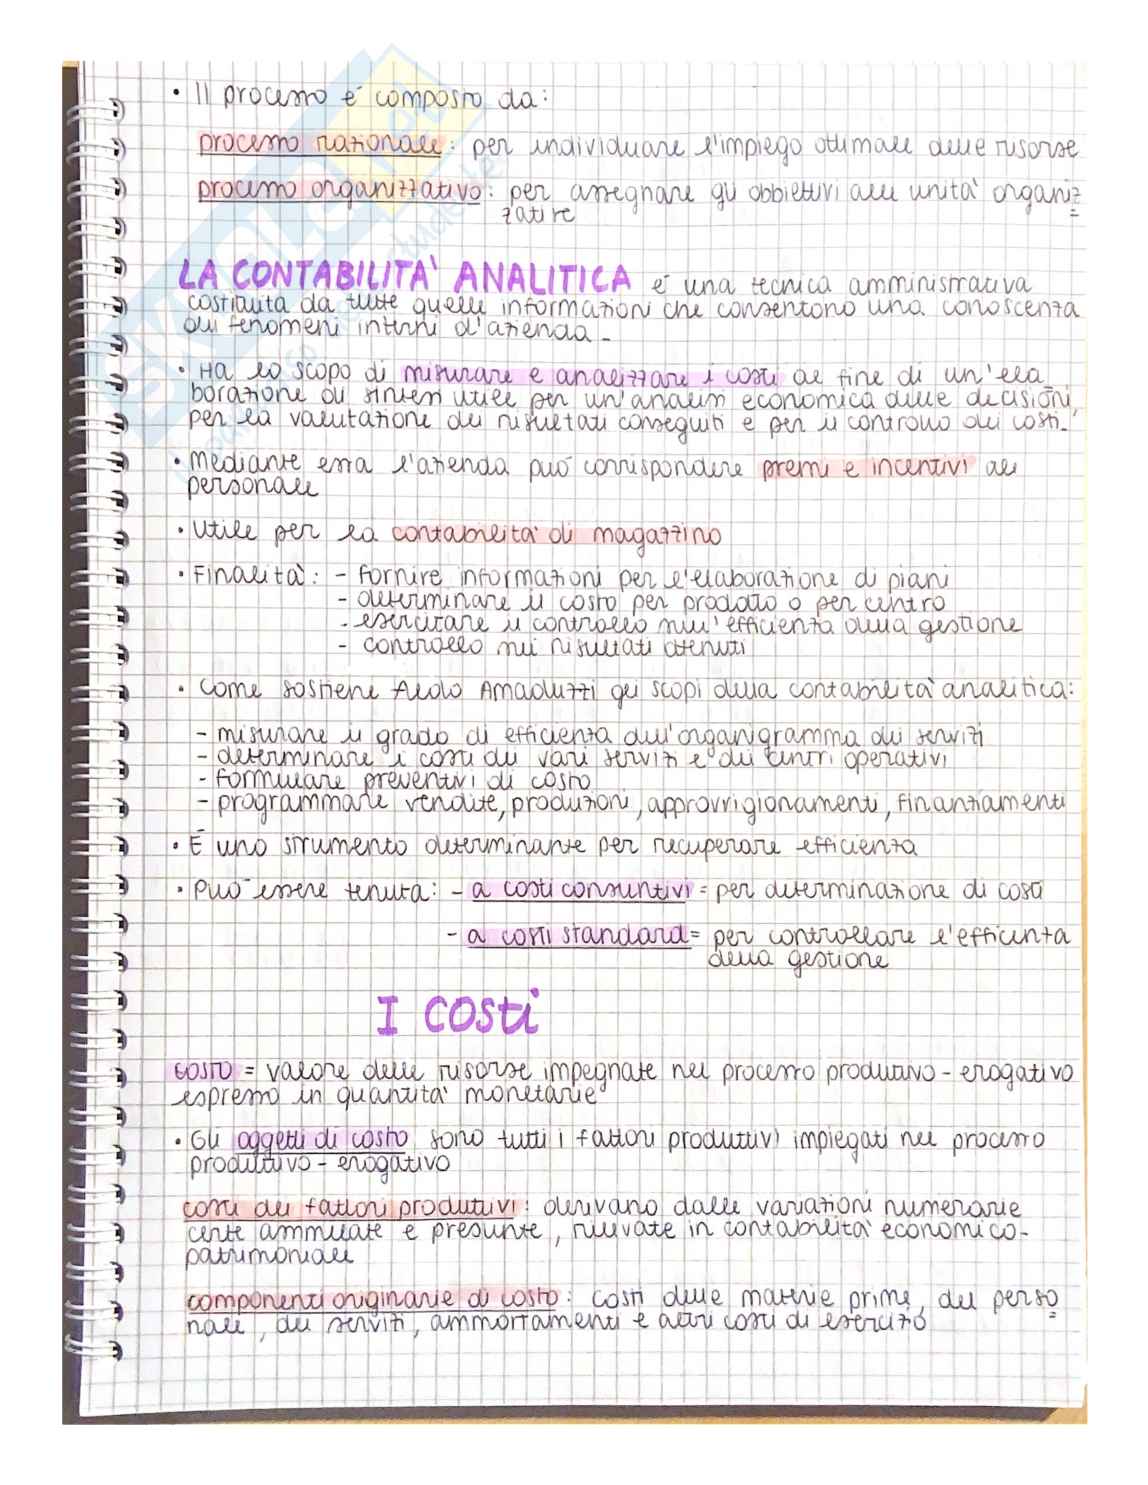 • Il processo è composto da:
processo razionale: per individuare l'impiego ottimale delle risorse
processo organizzativo: per assegnare gli obbiettivi alle unità organiz=
zative
LA CONTABILITA' ANALITICA è una tecnica amministrativa
costituita da tutte quelle informazioni che consentono una conoscenza
dei fenomeni interni d'azienda-
• Ha lo scopo di misurare e analizzare i costi al fine di un'ela
borazione di sintesi utile per un'analisi economica delle decisioni,
per la valutazione dei risultati conseguiti e per il controllo dei costi-
• Mediante essa l'azienda può corrispondere premi e incentivi al
personale
• Utile per la contabilità di magazzino
• Finalità: - fornire informazioni per l'elaborazione di piani
- determinare il costo per prodotto o per centro
- esercitare il controllo sull'efficienza della gestione
- controllo sui risultati ottenuti
• Come sostiene Aldo Amaduzzi gli scopi della contabilità analitica:
- misurare il grado di efficienza dell'organigramma dei servizi
- determinare i costi dei vari servizi e dei centri operativi
- formulare preventivi di costo
- programmare vendite, produzioni, approvvigionamenti, finanziamenti
• È uno strumento determinante per recuperare efficienza
• Può essere tenuta: - a costi consuntivi = per determinazione di costi
- a costi standard = per controllare l'efficienza
della gestione
I COSti
costo = valore delle risorse impegnate nel processo produttivo-erogativo
espresso in quantità monetarie
• Gli oggetti di costo sono tutti i fattori produttivi impiegati nel processo
produttivo-erogativo
costi dei fattori produttivi: derivano dalle variazioni numerarie
certe ammilate e presunte, rilevate in contabilità economico-
patrimoniale
componenti originarie di costo: costi delle materie prime, del perso=
nale, dei servizi, ammortamenti e altri costi di esercizio